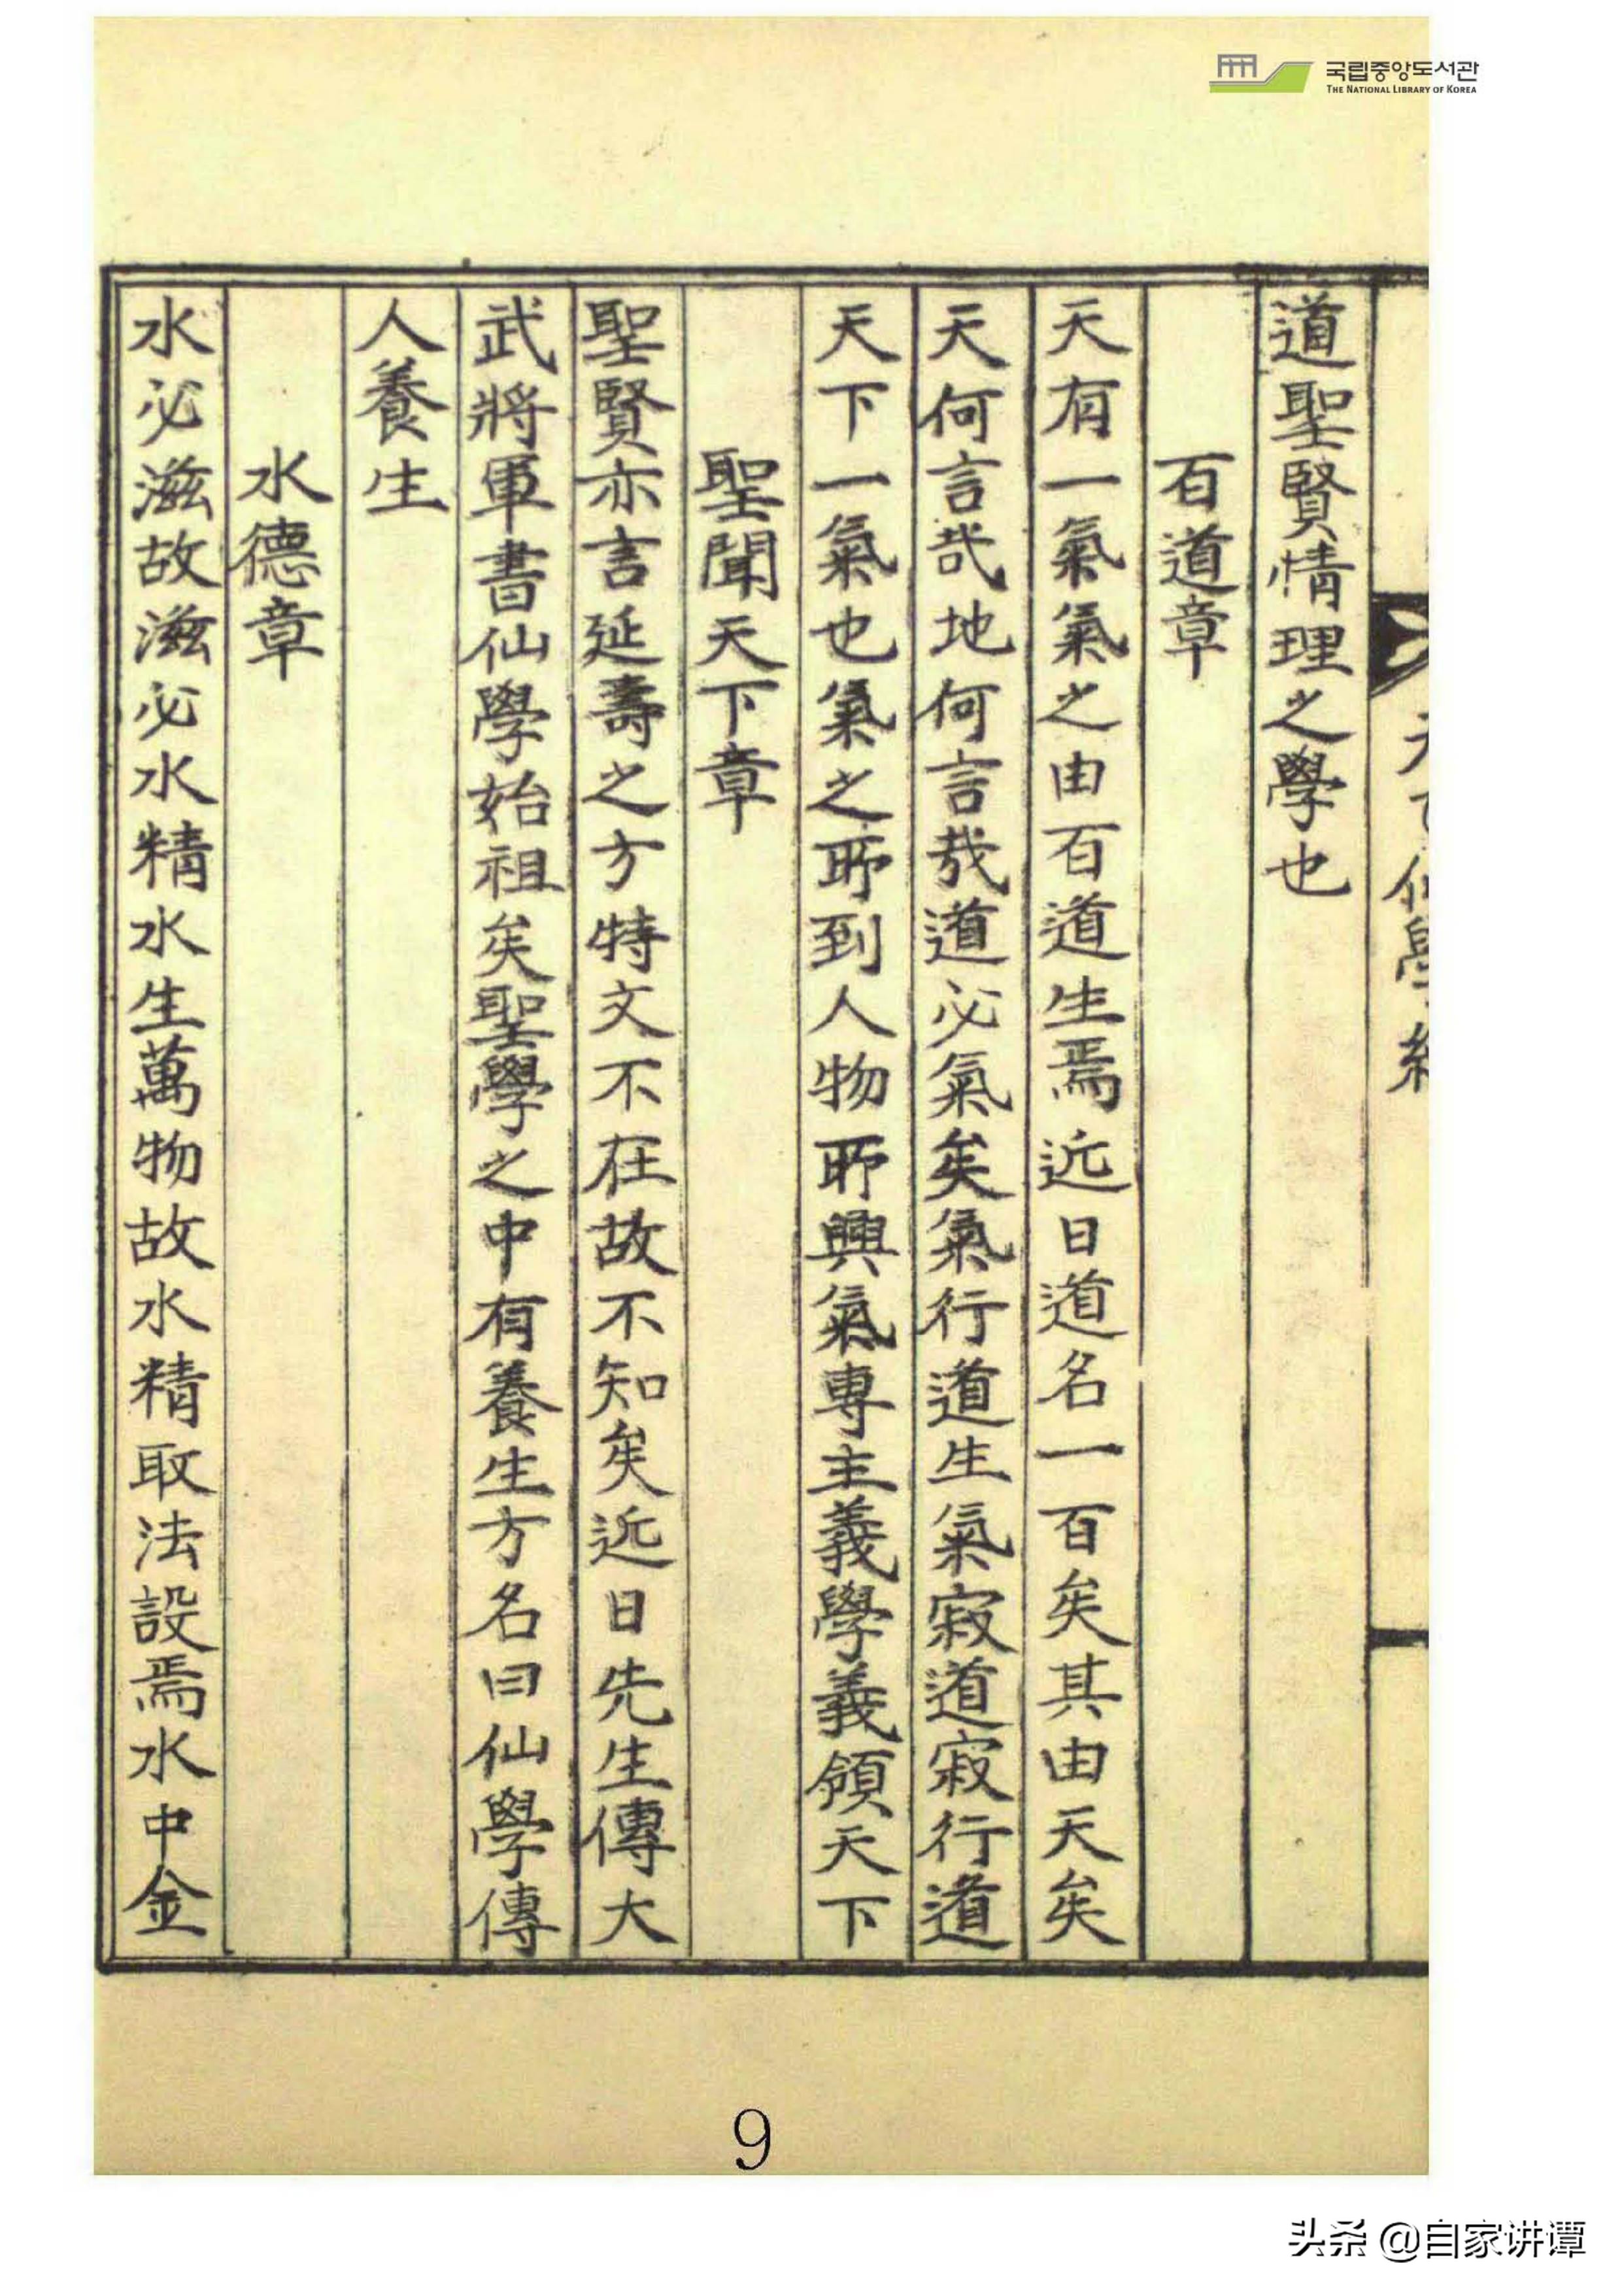 국립중앙도서관
THE NATIONAL LIBRARY OF KOREA
道聖賢情理之學也
百道章
天有一氣氣之由百道生焉近日道名一百矣其由天矣
天何言哉地何言哉道必氣矣氣行道生氣寂道寂行道
天下一氣也氣之所到人物所興氣專主義學義領天下
聖聞天下章
聖賢亦言延壽之方特文不在故不知矣近日先生傳大
武將軍書仙學始祖矣聖學之中有養生方名曰仙學傳
人養生
水德章
水必滋故滋必水精水生萬物故水精取法設焉水中金
9
头条 @自家讲谭